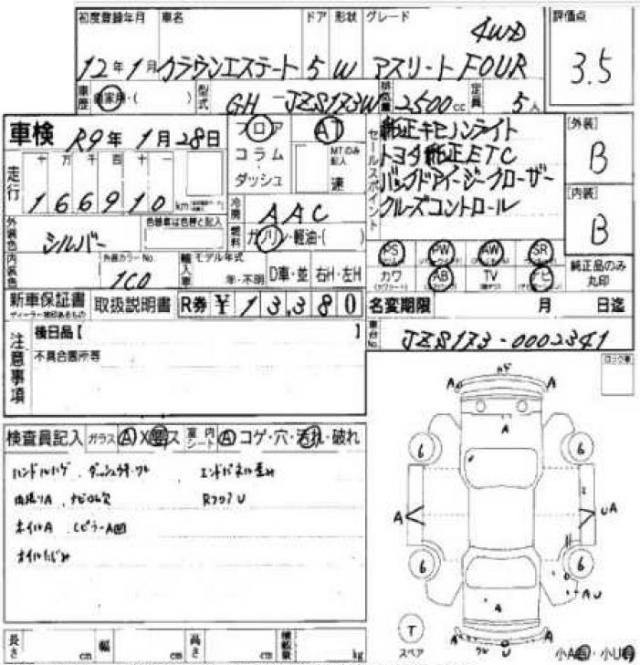 初度登録年月 車名 ドア 形状 グレード 評価点
4WD
12年1月 クラウンエステート 5 W アスリートFOUR 3.5
車歴 自家用・( ) 型式 GH-JZS173W 排気量 2500cc 定員 5人
車検 R9年1月28日 フロア AT セールスポイント 純正キセノンライト [外装]
コラム・ MTのみ記入 トヨタ純正ETC B
走行 十 万 千 百 十 一 ダッシュ 速 バックドアイージークローザー
166910km 冷房 AAC クルーズコントロール [内装]
外装色 シルバー 色替車は色替と記入 燃料 ガソリン・軽油・( ) B
内装色 外装カラーNo. 1C0 輸入車 モデル年式 年・不明 D車・並 右H・左H
PS PW AW SR 純正品のみ丸印
カワ AB TV ナビ
新車保証書 取扱説明書 R券 ¥13,380 名変期限 月 日迄
ディーラー捺印あるもの
注意事項 後日品【 】 車台No. JZS173-0002341
不具合箇所等 ロック車
検査員記入 ガラス A X ス 室内シート A コゲ・穴・汚れ・破れ
ハンドルハゲ ダッシュキズ・ワレ エンドパネル歪み
内張りA ナビロム欠 RフロアU
ホイルA CピラーA凹
オイルにじみ
長さ cm 幅 cm 高さ cm 積載量 kg
T スペア 小A・小U